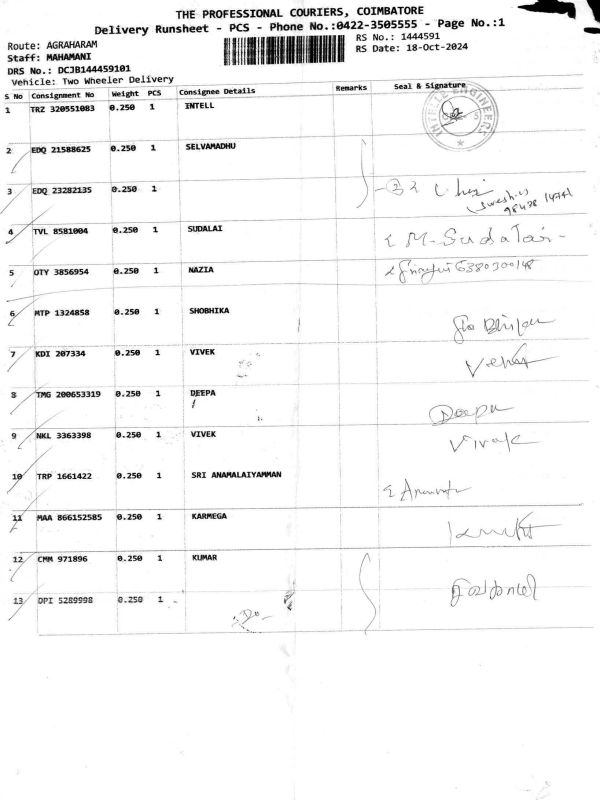 THE PROFESSIONAL COURIERS, COIMBATORE
Delivery Runsheet - PCS - Phone No.:0422-3505555 - Page No.:1
Route: AGRAHARAM
RS No.: 1444591
Staff: MAHAMANI
RS Date: 18-Oct-2024
DRS No.: DCJB144459101
Vehicle: Two Wheeler Delivery
S No Consignment No Weight PCS Consignee Details Remarks Seal & Signature
1 TRZ 320551083 0.250 1 INTELL
2 EDQ 21588625 0.250 1 SELVAMADHU
3 EDQ 23282135 0.250 1
4 TVL 8581004 0.250 1 SUDALAI M. Sudalai
5 OTY 3856954 0.250 1 NAZIA 6380300148
6 MTP 1324858 0.250 1 SHOBHIKA
7 KDI 207334 0.250 1 VIVEK
8 TMG 200653319 0.250 1 DEEPA Deepa
9 NKL 3363398 0.250 1 VIVEK Vivek
10 TRP 1661422 0.250 1 SRI ANAMALAIYAMMAN
11 MAA 866152585 0.250 1 KARMEGA
12 CMM 971896 0.250 1 KUMAR
13 DPI 5289998 0.250 1 Do